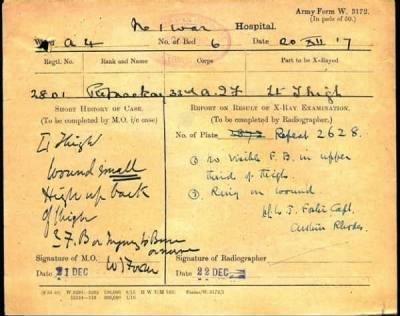 Army Form W. 3172.
(In pads of 50.)
No 1 War Hospital.
Ward A 4 No. of Bed 6 Date 20 XII 17
Regtl. No. Rank and Name Corps Part to be X-Rayed
2801 33rd A.I.F Lt Thigh
SHORT HISTORY OF CASE.
(To be completed by M.O. i/c case)
REPORT ON RESULT OF X-RAY EXAMINATION.
(To be completed by Radiographer.)
No. of Plate Repeat 2628.
Thigh
wound small
High up back
of thigh
? F. B or Injury to Bone
① no visible F. B. in upper
third of thigh.
② Ring on wound
Capt.
Signature of M.O.
Signature of Radiographer
Date 21 DEC
Date 22 DEC